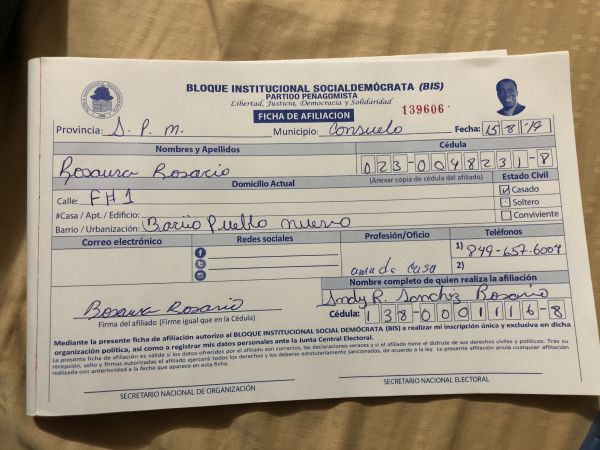 BLOQUE INSTITUCIONAL SOCIALDEMÓCRATA (BIS)
PARTIDO PEÑAGOMISTA
Libertad, Justicia, Democracia y Solidaridad
FICHA DE AFILIACION 139606
Provincia: S. P. m. Municipio: Consuelo Fecha: 15 8 19
Nombres y Apellidos Cédula
Rosaura Rosario 023-0048231-8
Domicilio Actual (Anexar copia de cédula del afiliado) Estado Civil
Calle: FH1 Casado
#Casa / Apt. / Edificio: Soltero
Barrio / Urbanización: Barrio Pueblo nuevo Conviviente
Correo electrónico Redes sociales Profesión/Oficio Teléfonos
1) 849-657-6007
ama de casa 2)
Nombre completo de quien realiza la afiliación
Rosaura Rosario Andy R. Sanchez Rosario
Firma del afiliado (Firme igual que en la Cédula) Cédula: 138-0001116-8
Mediante la presente ficha de afiliación autorizo al BLOQUE INSTITUCIONAL SOCIAL DEMÓCRATA (BIS) a realizar mi inscripción única y exclusiva en dicha
organización política, así como a registrar mis datos personales ante la Junta Central Electoral.
La presente ficha de afiliación es válida si los datos ofrecidos por el afiliado son correctos, las declaraciones veraces y si el afiliado tiene el disfrute de sus derechos civiles y políticos. Tras su
recepción, sello y firmas autorizadas el afiliado ejercerá todos los derechos y los deberes estatutariamente sancionados, de acuerdo a la ley. La presente afiliación anula cualquier afiliación
realizada con anterioridad a la fecha que aparece en esta ficha.
SECRETARIO NACIONAL DE ORGANIZACIÓN SECRETARIO NACIONAL ELECTORAL